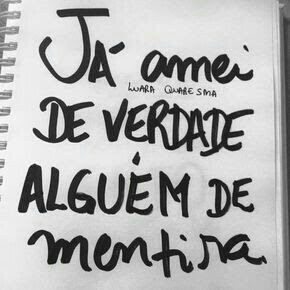 JÁ amei
LUARA QUARESMA
DE VERDADE
ALGUÉM DE
mentira